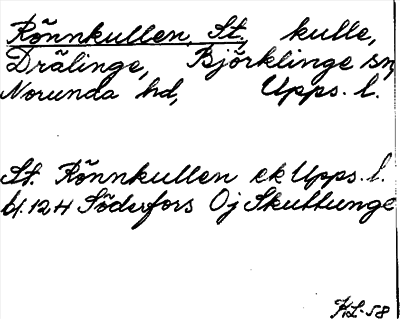 Rönnkullen, St., kulle,
Drälinge, Björklinge sn,
Norunda hd, Upps. l.
St. Rönnkullen ek Upps. l.
bl. 12 H Söderfors Oj Skuttunge
KL-58